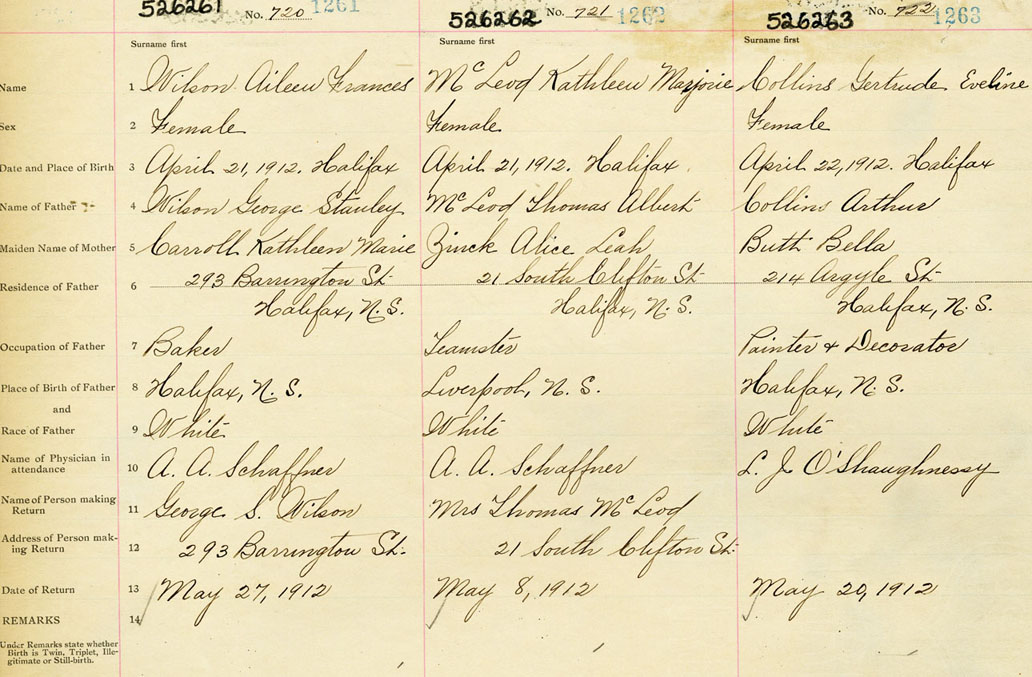 526261 No. 720 1261 526262 No. 721 1262 526263 No. 722 1263
Surname first Surname first Surname first
Name 1 Wilson Aileen Frances McLeod Kathleen Marjorie Collins Gertrude Eveline
Sex 2 Female Female Female
Date and Place of Birth 3 April 21, 1912. Halifax April 21, 1912. Halifax April 22, 1912. Halifax
Name of Father 4 Wilson George Stanley McLeod Thomas Albert Collins Arthur
Maiden Name of Mother 5 Carroll Kathleen Marie Zinck Alice Leah Butt Bella
Residence of Father 6 293 Barrington St. 21 South Clifton St. 214 Argyle St.
Halifax, N.S. Halifax, N.S. Halifax, N.S.
Occupation of Father 7 Baker Teamster Painter & Decorator
Place of Birth of Father 8 Halifax, N.S. Liverpool, N.S. Halifax, N.S.
and
Race of Father 9 White White White
Name of Physician in
attendance 10 A. A. Schaffner A. A. Schaffner L. J O'Shaughnessy
Name of Person making
Return 11 George S. Wilson Mrs Thomas McLeod
Address of Person mak-
ing Return 12 293 Barrington St. 21 South Clifton St.
Date of Return 13 May 27, 1912 May 8, 1912 May 20, 1912
REMARKS 14
Under Remarks state whether
Birth is Twin, Triplet, Ille-
gitimate or Still-birth.